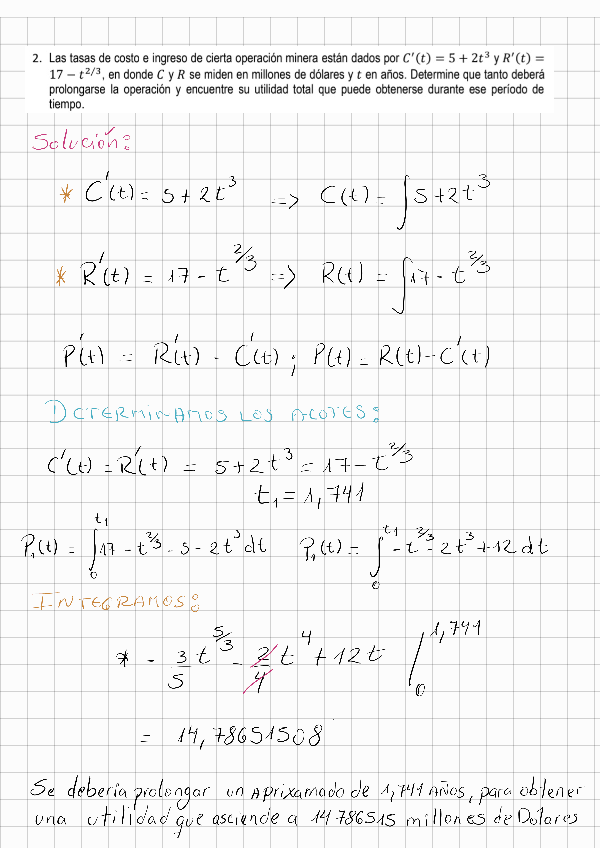 2. Las tasas de costo e ingreso de cierta operación minera están dados por C′(t) = 5 + 2t³ y R′(t) =
17 − t^{2/3}, en donde C y R se miden en millones de dólares y t en años. Determine que tanto deberá
prolongarse la operación y encuentre su utilidad total que puede obtenerse durante ese período de
tiempo.
Solución:
* C′(t) = 5 + 2t³ => C(t) = ∫5 + 2t³
* R′(t) = 17 − t^{2/3} => R(t) = ∫17 − t^{2/3}
P′(t) = R′(t) − C′(t) ; P(t) = R(t) − C′(t)
DETERMINAMOS LOS ACOTES:
C′(t) = R′(t) = 5 + 2t³ = 17 − t^{2/3}
t₁ = 1,741
P₁(t) = ∫₀^{t₁} 17 − t^{2/3} − 5 − 2t³ dt P₁(t) = ∫₀^{t₁} − t^{2/3} − 2t³ + 12 dt
INTEGRAMOS:
* − 3/5 t^{5/3} − 2/4 t⁴ + 12t |₀^{1,741}
= 14,78651508
Se debería prolongar un Aprixamado de 1,741 Años, para obtener
una utilidad que asciende a 14.786515 millones de Dolares